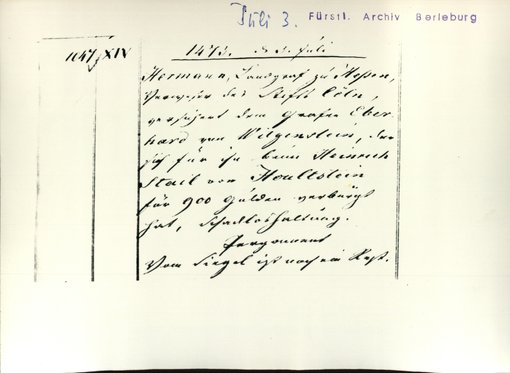 Juli 3. Fürstl. Archiv Berleburg
1047, XIV
1473. d. 3. Juli
Hermann, Landgraf zu Hessen,
Verweser des Stifts Cöln,
versichert dem Grafen Eber-
hard von Witgenstein, der
sich für ihn beim Heinrich
Stail von Houltstein
für 900 Gulden verbürgt
hat, Schadloshaltung.
Pergament
Vom Siegel ist noch ein Rest.